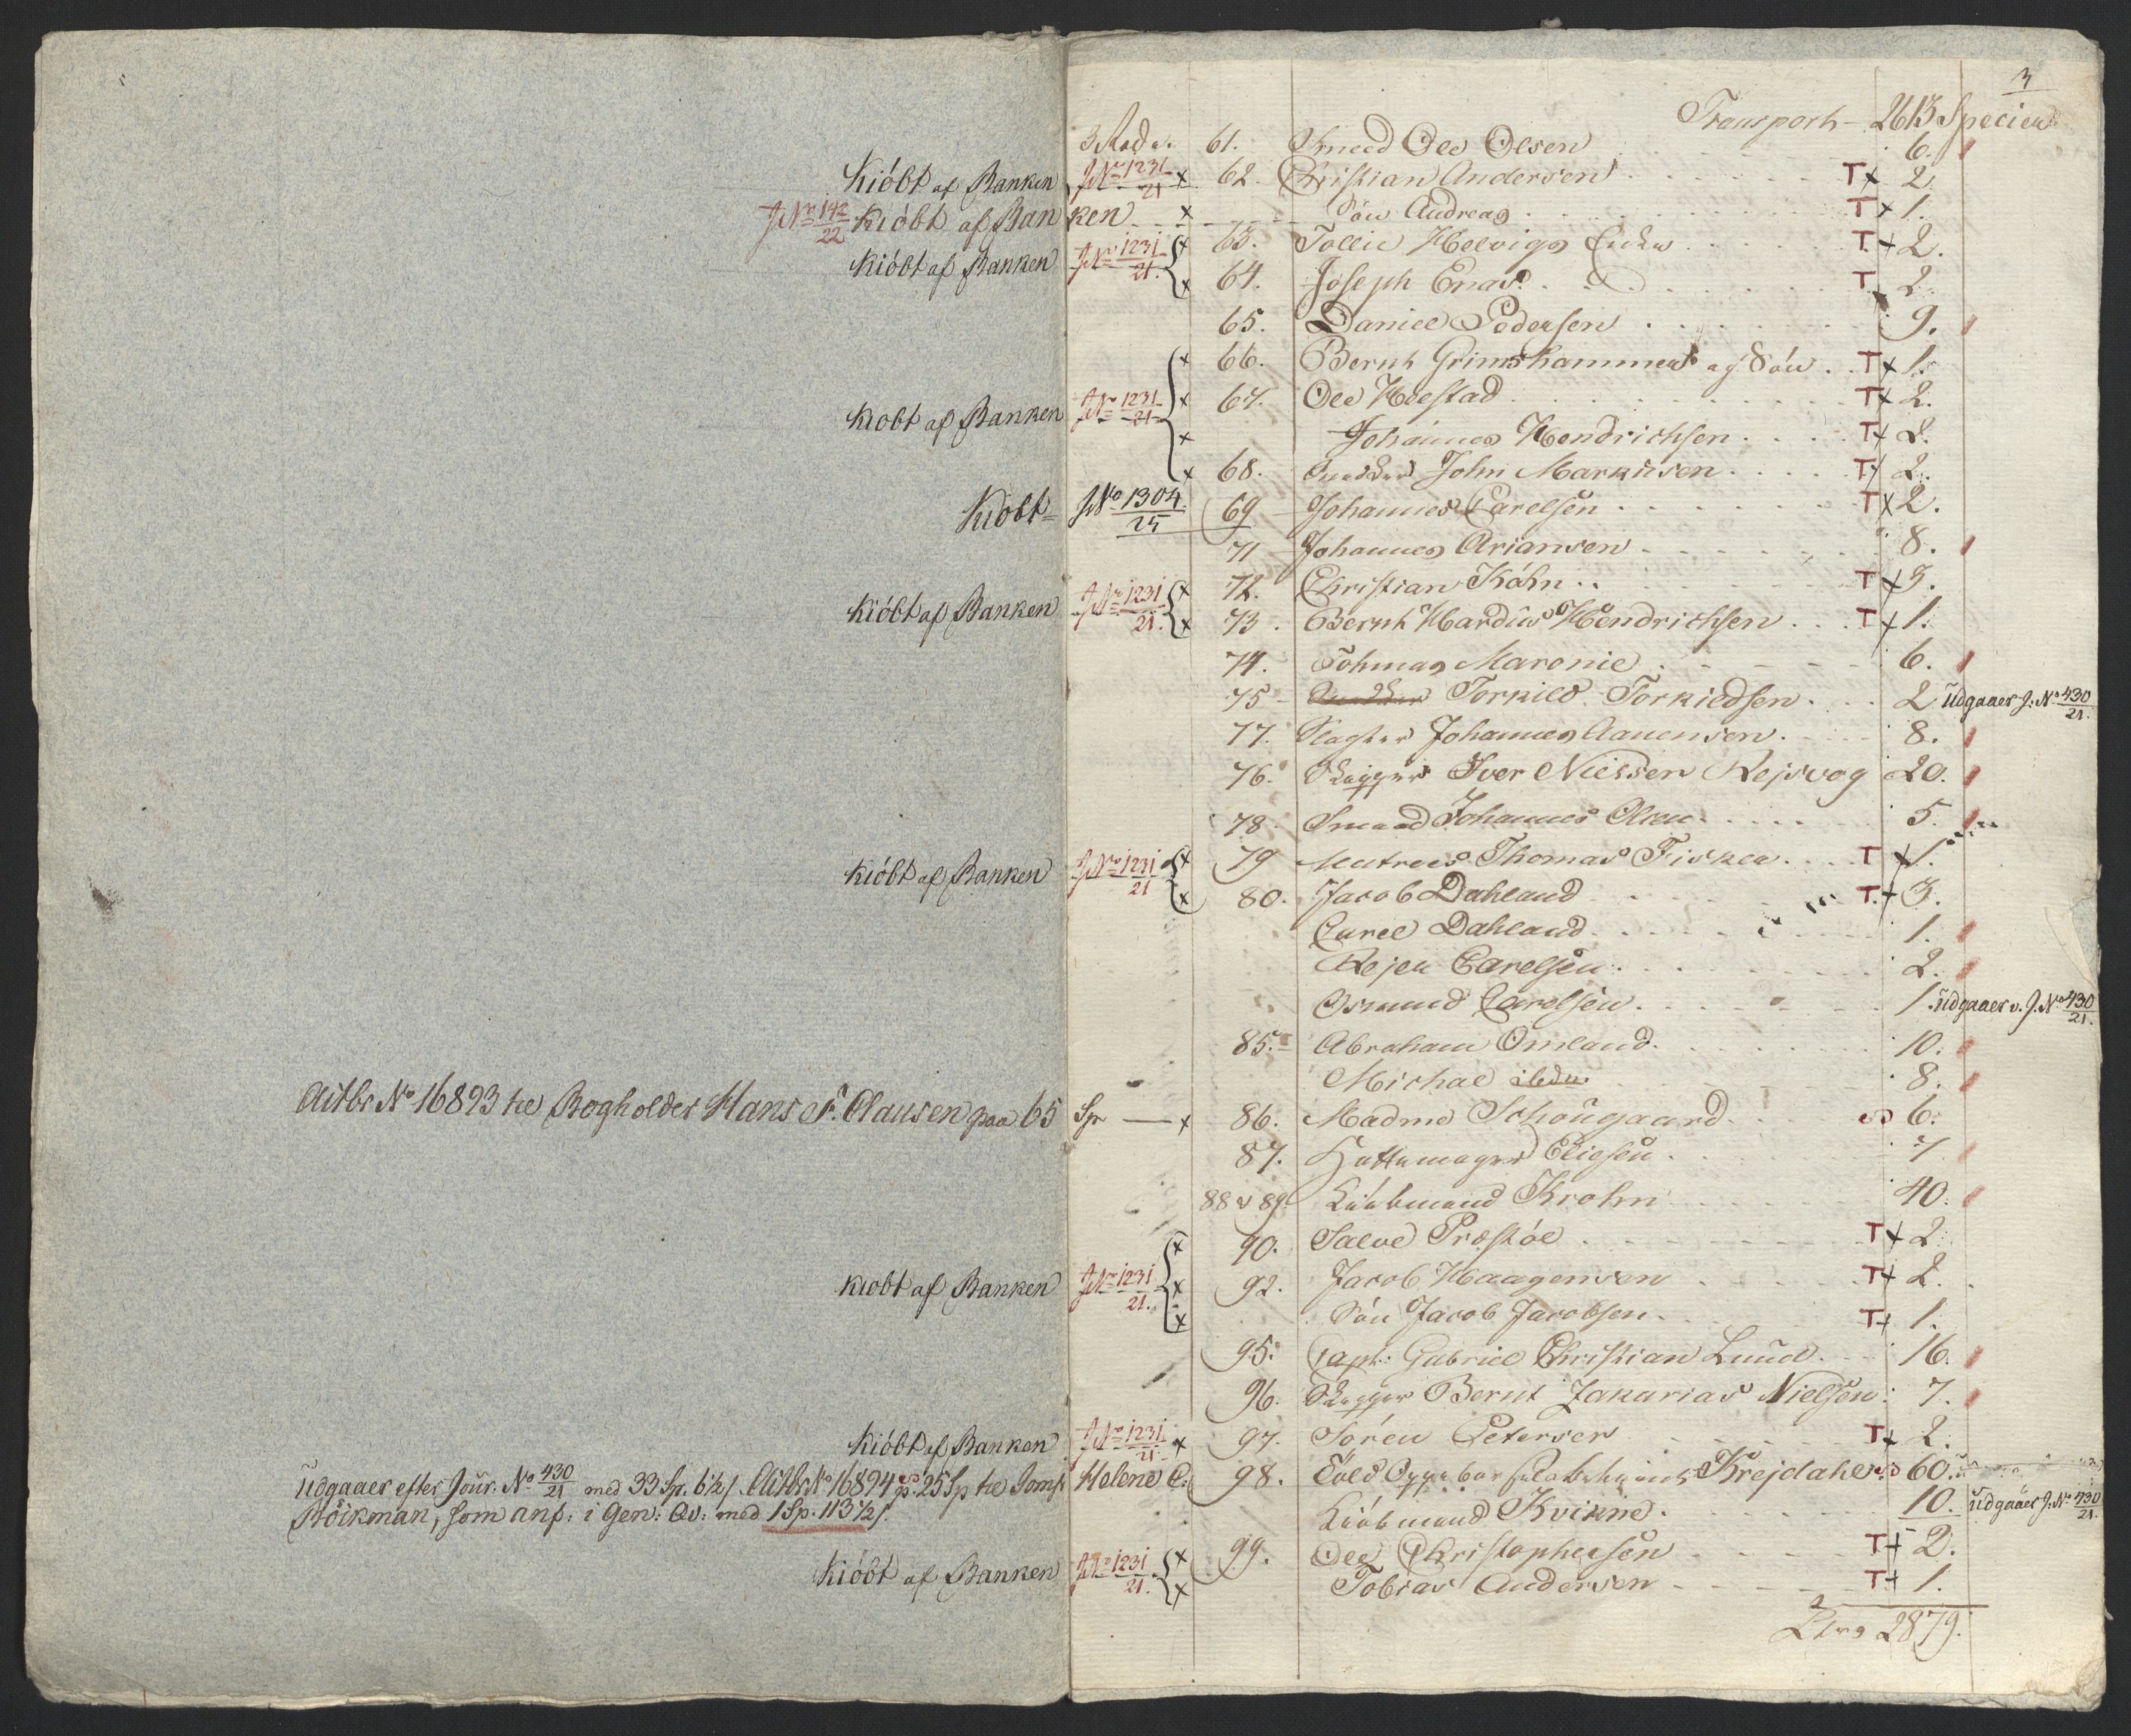 3
Transport – 2613 Specier
3 Rode. 61. Smed Ole Olsen 6.
Kióbt af Banken J.No 1231/21 x 62. Christian Andersen T x 2.
J.No 142/22 Kióbt af Banken x Sön Andreas T x 1.
Kióbt af Banken J.No 1231/21. x 63. Tollie Helvigs Enke T + 2.
x 64. Joseph Enas. T 2.
65. Daniel Pedersen 9.
x 66. Bernt Grimskammer og Sön T x 1.
Kiobt af Banken J.No 1231/21 x 67. Ole Hoestad T x 2.
x Johannes Hendrichsen T x 2.
x 68. Snedker John Markusen T 2.
Kiobt J.No 1304/25 69 Johannes Carelsen T x 2.
71 Johannes Ariansen 8.
Kióbt af Banken J.No 1231/21. x 72. Christian Kóhn T x 3.
x 73. Bernt Hardus Hendrichsen T x 1.
74. Tohmas Maronie 6.
75 – Snedker Torkild Torkildsen 2 Udgaaer J.No 430/21.
77. Slagter Johannes Aanensen 8.
76. Skipper Iver Nielsen Rejsvog 20.
78. Smed Johannes Olsen 5.
Kióbt af Banken J.No 1231/21 x 79 Matros Thomas Fisker T x 1.
x 80. Jacob Dahland T. + 3.
Carel Dahland 1.
Rejer Carelsen 2.
Osmund Carelsen 1. Udgaaer v. J.No 430/21.
85. Abraham Omland 10.
Michael ibdm. 8.
Actbr No 16893 til Bogholder Hans F. Clausen paa 65 Sp – x 86. Madme Schougaard 6.
87. Hattemager Eliesen 7
88 & 89. Kiöbmand Krohn 40.
x 90. Salve Præstöe T + 2.
Kiobt af Banken J.No 1231/21. x 92. Jacob Haagensen T + 2.
x Sön Jacob Jacobsen T + 1.
95. Capt: Gabriel Christian Lund 16.
96. Skipper Bernt Zakarias Nielsen 7.
Kióbt af Banken J.No 1231/21 x 97. Sóren Petersen T x 2.
Udgaaer efter Jour. No 430/21 med 33 Sp. 6½ s. Actbr No 16894 p. 25 Sp til Jomf Helene C: 98. Krejdahl 60.
Böikman, som anf: i Gen: Qv: med 1 Sp. 113½ s. Kiöbmand Kvinne 10. Udgaaer J.No 430/21.
Kióbt af Banken J.No 1231/21. x 99. Ole Christophersen T + 2.
x Tobias Andersen T + 1.
2879.